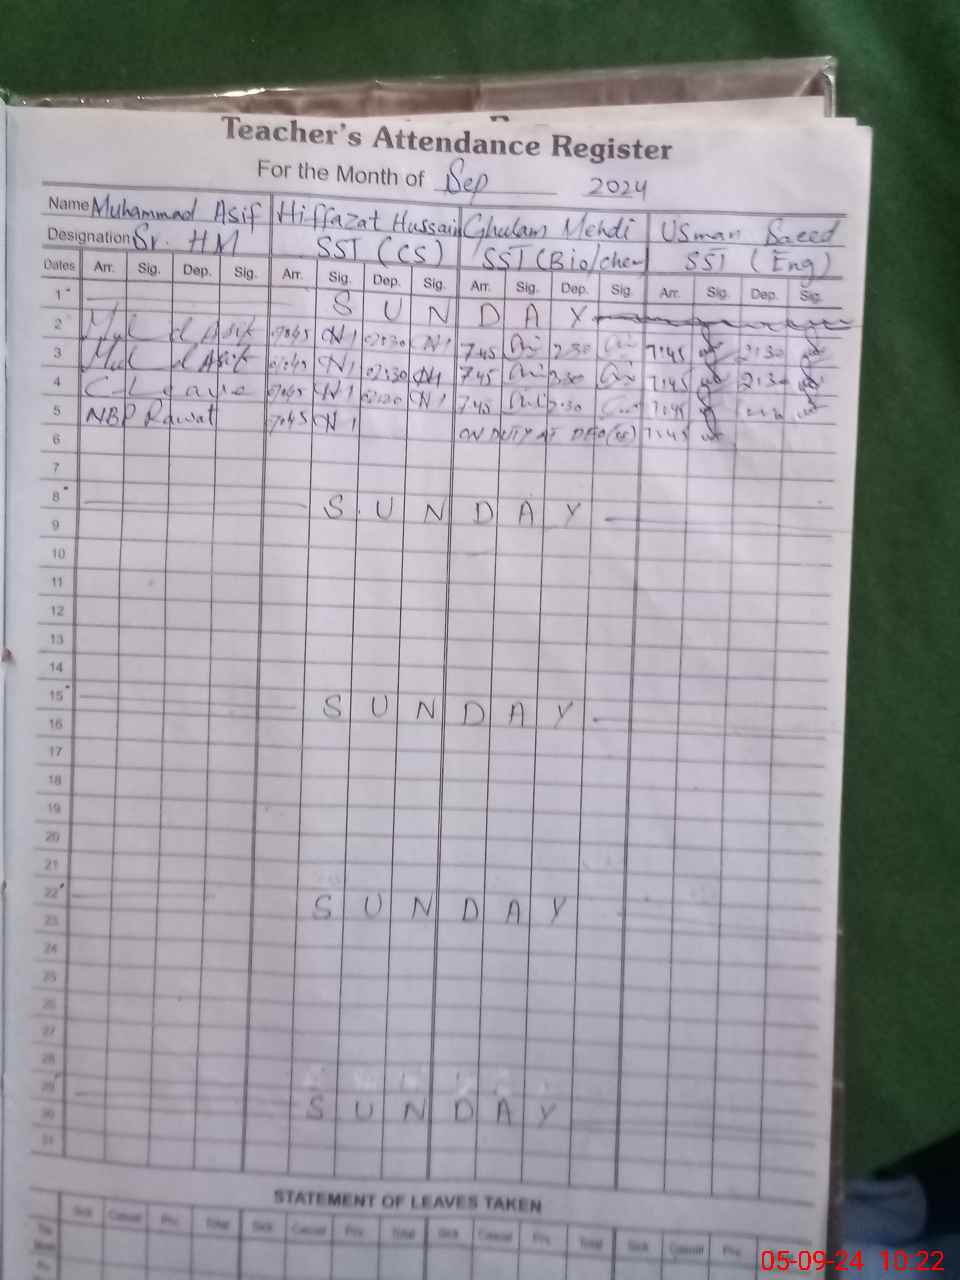 Teacher's Attendance Register
For the Month of Sep 2024
Name Muhammad Asif Hiffazat Hussain Ghulam Mehdi Usman Saeed
Designation Sr. HM SST (CS) SST (Bio/chem) SST (Eng)
Dates Arr. Sig. Dep. Sig. Arr. Sig. Dep. Sig. Arr. Sig. Dep. Sig. Arr. Sig. Dep. Sig.
1 SUNDAY
2 07:45 02:30 7:45 2:30 7:45 2:30
3 07:45 02:30 7:45 2:30 7:45 2:30
4 C Leave 07:45 7:45 2:30 7:45
5 NBP Rawat 07:45 ON DUTY AT DEO 7:45
6
7
8 SUNDAY
9
10
11
12
13
14
15 SUNDAY
16
17
18
19
20
21
22 SUNDAY
23
24
25
26
27
28
29 SUNDAY
30
31
STATEMENT OF LEAVES TAKEN
Sick Casual Priv. Total Sick Casual Priv. Total Sick Casual Priv. Total Sick Casual Priv.
05-09-24 10:22